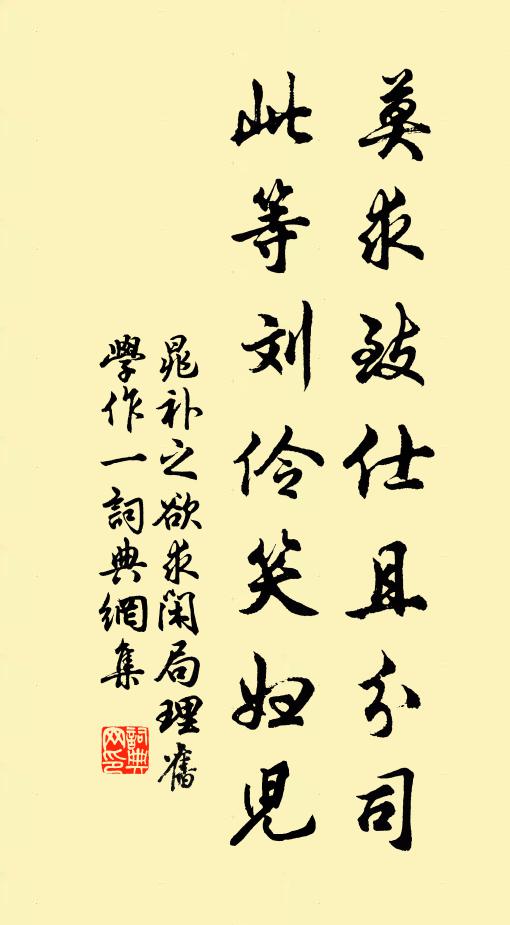 莫求致仕且分司
此等刘伶笑妇儿
晁补之欲求闲局理旧
學作一詞典網集
詞典网印